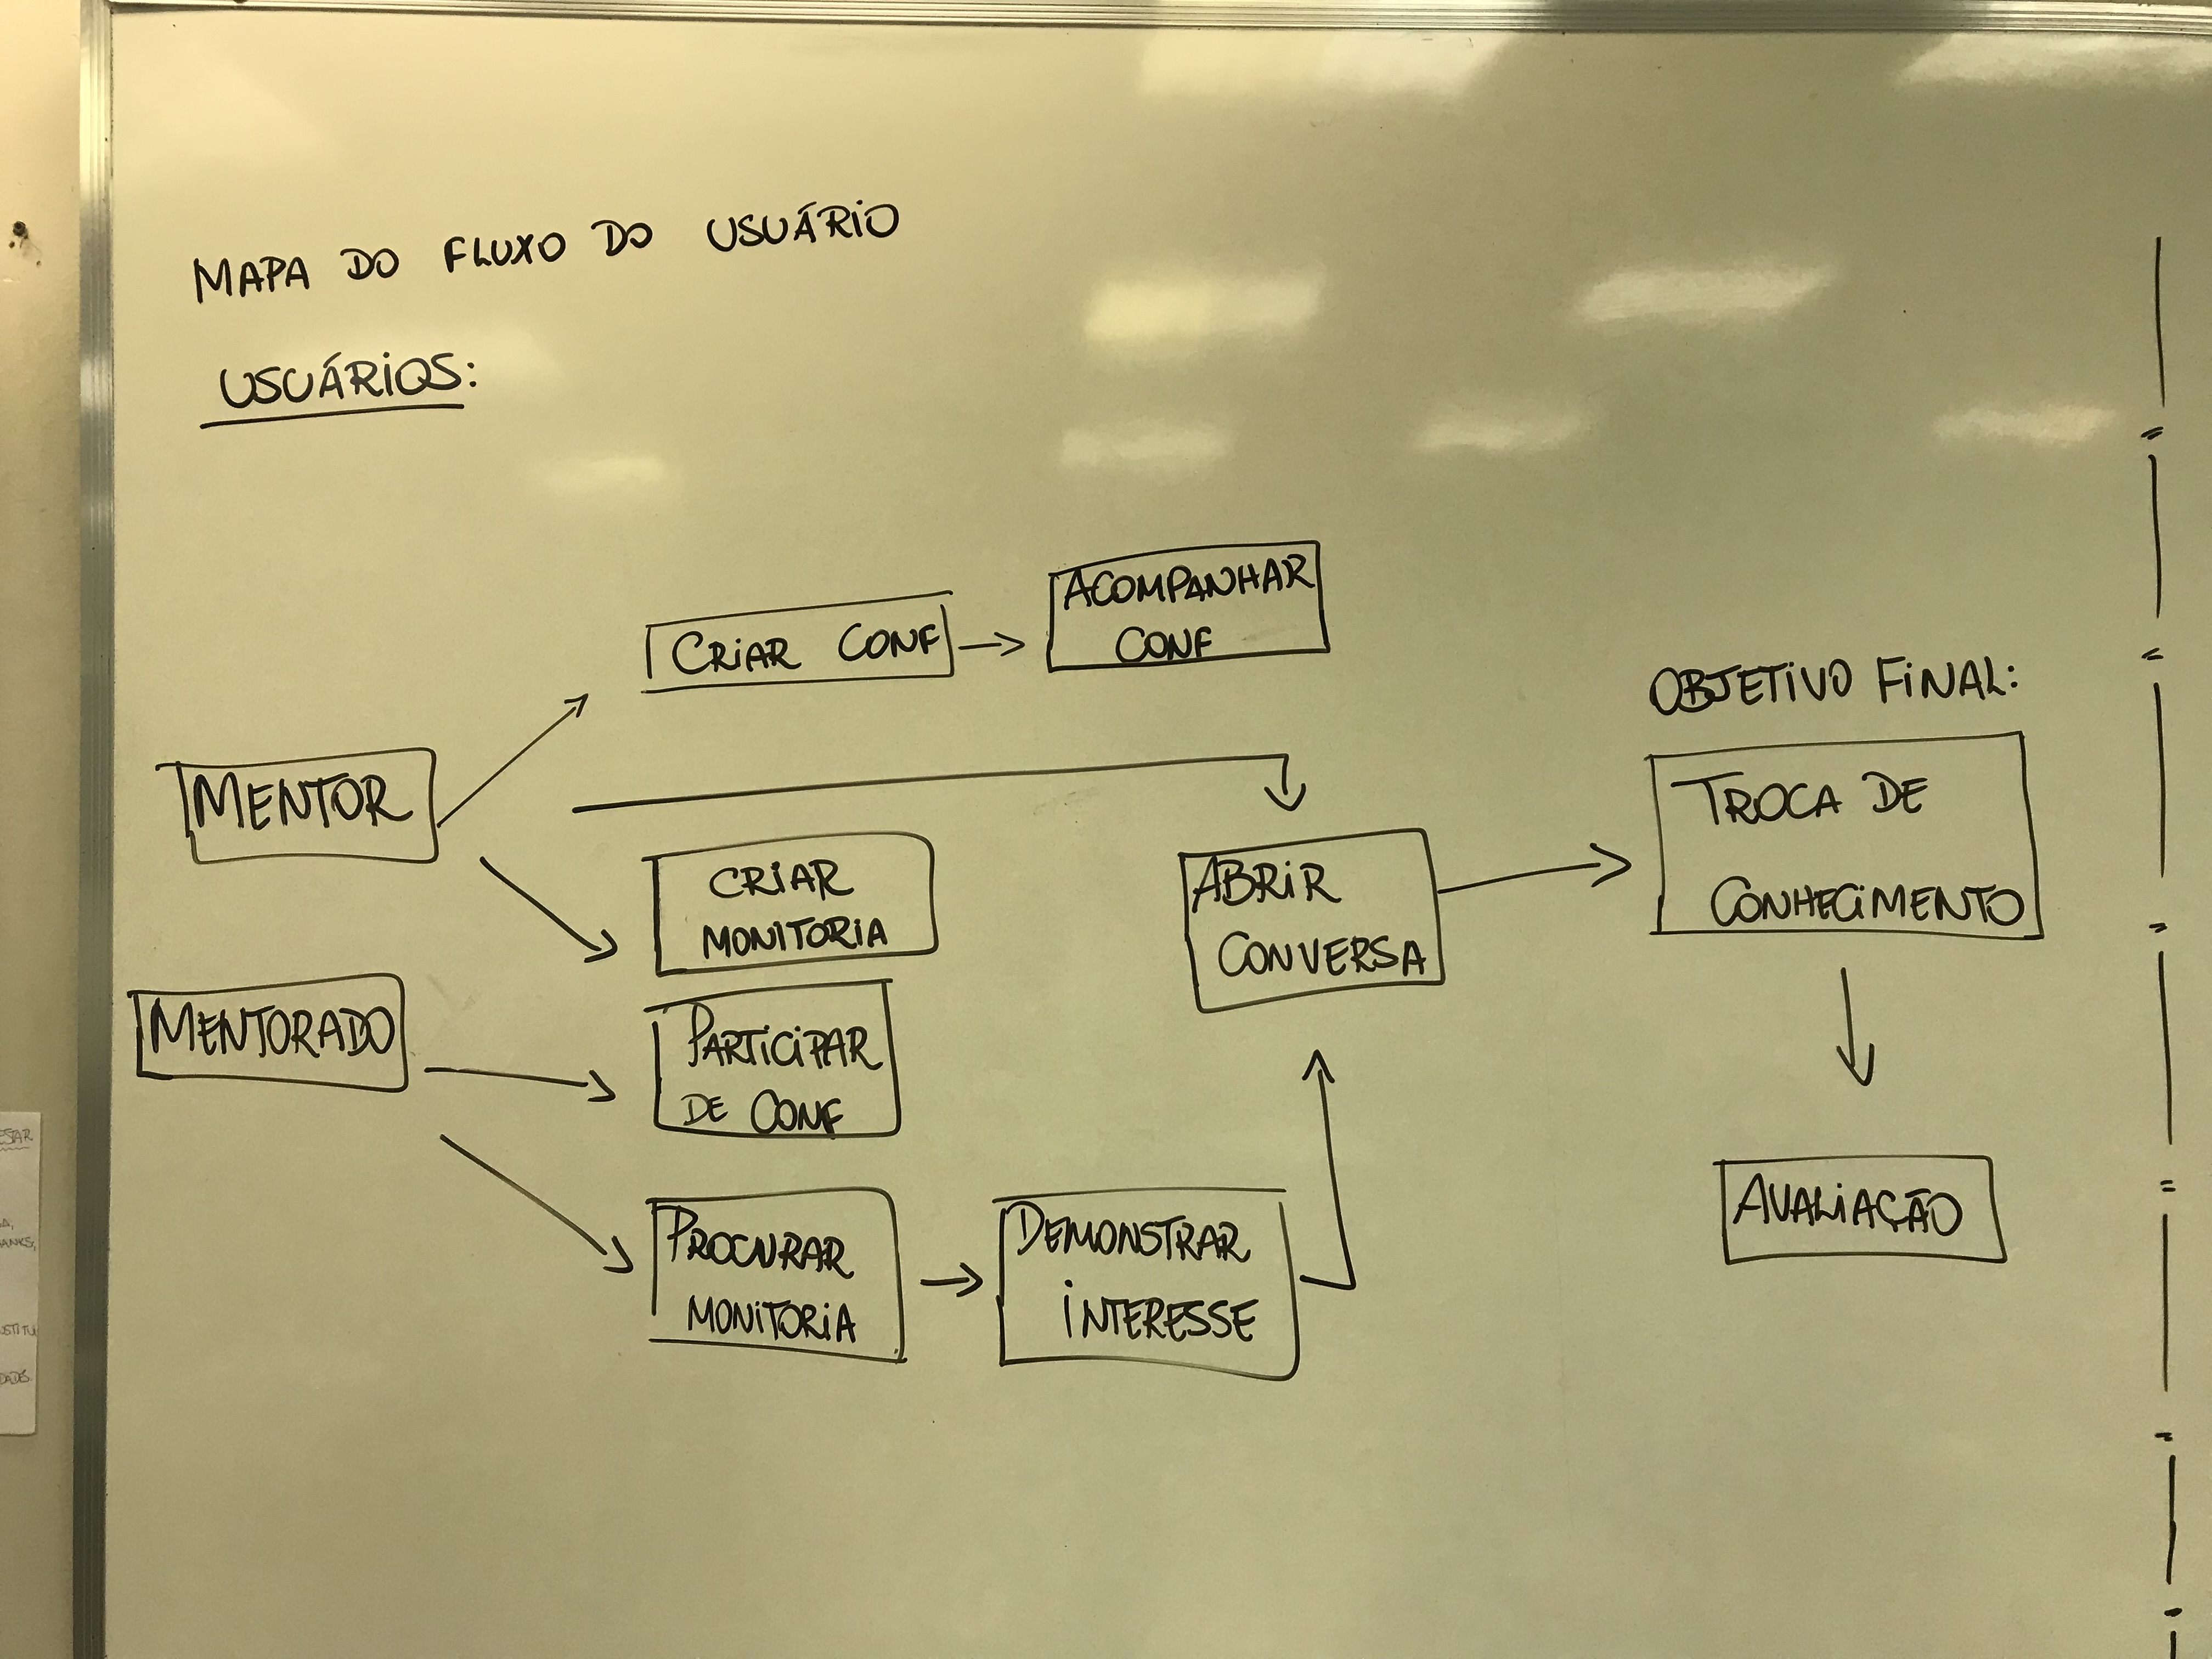 MAPA DO FLUXO DO USUÁRIO
USUÁRIOS:
MENTOR
CRIAR CONF
ACOMPANHAR
CONF
CRIAR
MONITORIA
MENTORADO
PARTICIPAR
DE CONF
PROCURAR
MONITORIA
DEMONSTRAR
INTERESSE
ABRIR
CONVERSA
OBJETIVO FINAL:
TROCA DE
CONHECIMENTO
AVALIAÇÃO